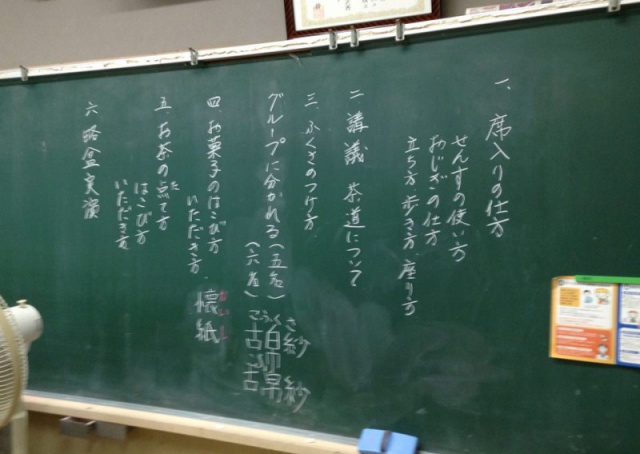 一、席入りの仕方
せんすの使い方
おじぎの仕方
立ち方、歩き方、座り方
二 講議 茶道について
三、ふくさのつけ方、
グループに分かれる(五名)
(六名)
こふくさ
古帛紗
古帛紗
四 お菓子のはこび方
いただき方、
懐紙
かいし
五、お茶の点て方
た
はこび方
いただき方
六 略盆実演